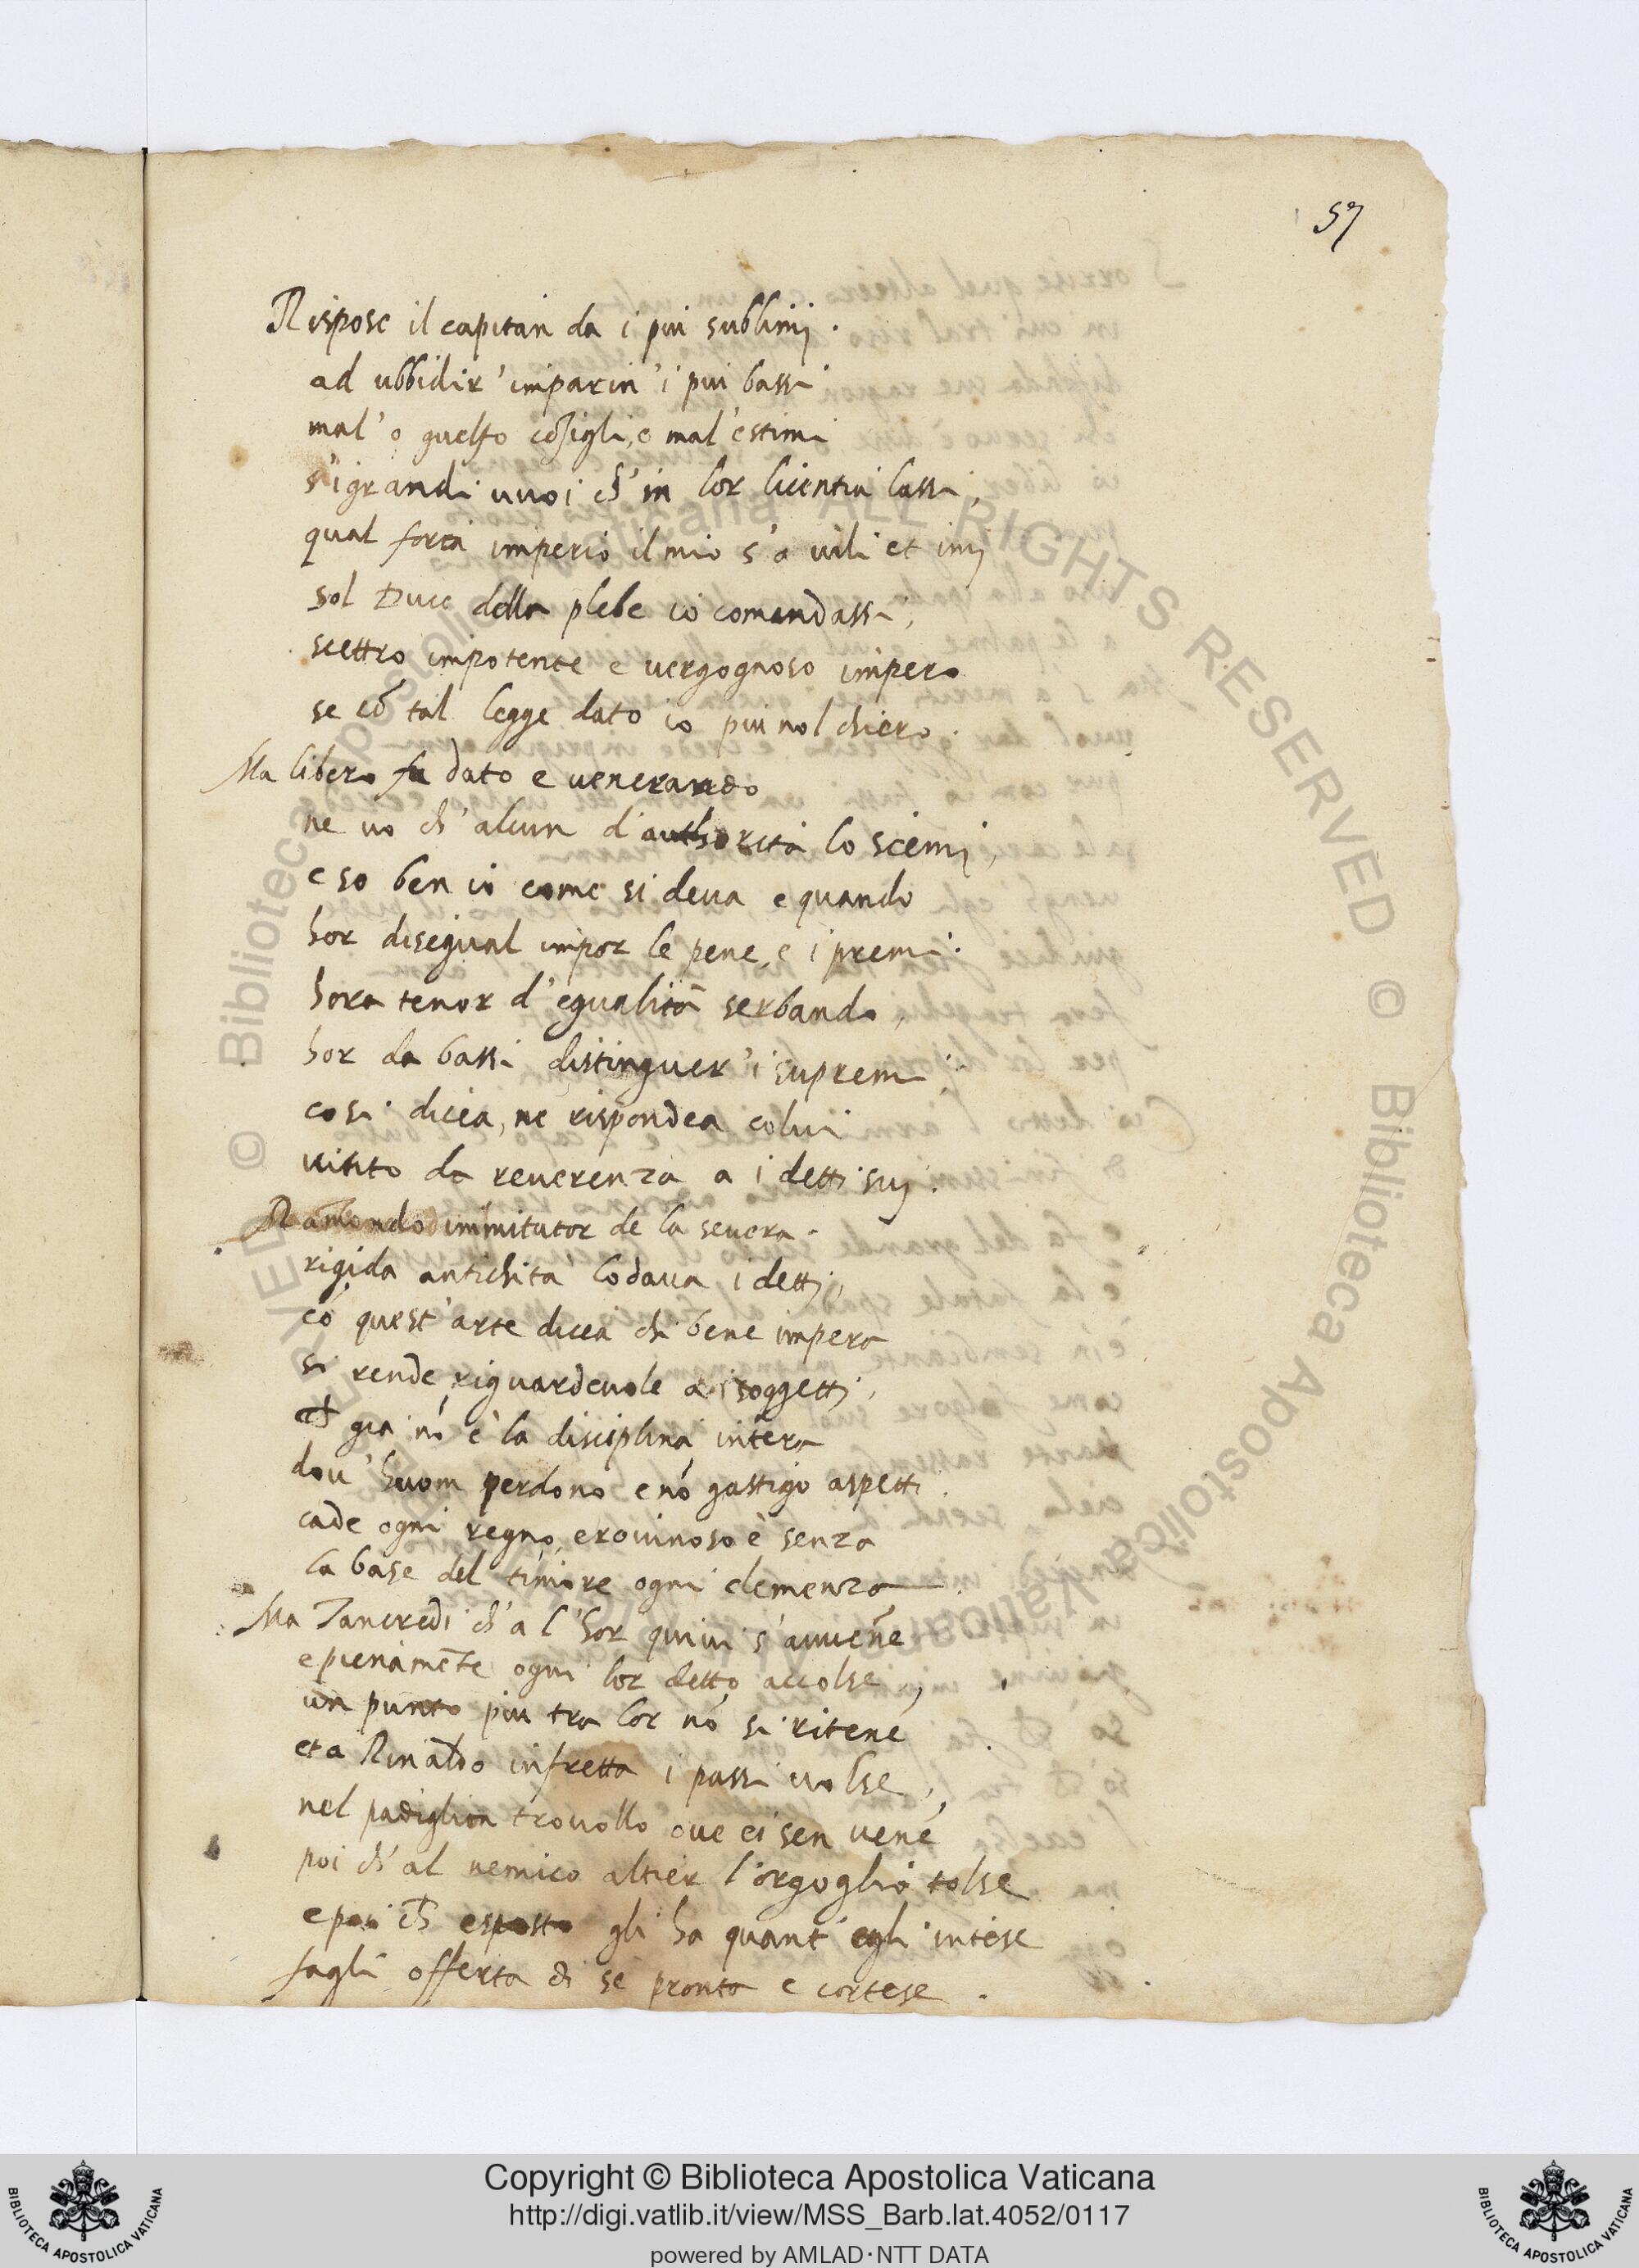 57
Rispose il capitan da i piu sublimj.
ad ubbidir' imparin' i piu bassi
mal' o guelfo cõsigli, e mal' estimi
s' i grandi vuoi ch' in lor licentia lassi,
qual foria imperio il mio s' a vili et imj
sol Duce della plebe io comandassi,
scettro impotente e vergognoso impero
se cõ tal legge dato io piu nol chiero.
Ma libero fu dato e venerando
ne vo ch' alcun d' authorità lo scemj,
e so ben io come si deva e quando
hor disegual impor le pene, e i premi.
hora tenor d' egualità serbando,
hor da bassi distinguer' i supremi.
cosi dicea, ne rispondea colui
vinto da reverenza a i detti suj.
Ramondo immitator de la severa
rigida antichità lodava i dettj,
cõ quest' arte dicea chi bene impera
si rende riguardevole a i soggettj,
ch già nõ è la disciplina intera
dov' huom perdono e nõ gastigo aspetti.
cade ogni regno, e rovinoso è senza
la base del timore ogni clemenza.
Ma Tancredi ch' a l' hor quivi s' avvene
e pienamẽte ogni lor detto accolse,
un punto piu tra lor nõ si ritene
et a Rinaldo in fretta i passi volse,
nel padiglion trovollo ove ei sen vene
poi ch' al nemico altier l' orgoglio tolse
e poi ch esposto gli ha quant' egli intese
fagli offerta di se pronta e cortese.
© Biblioteca Apostolica Vaticana ALL RIGHTS RESERVED © Biblioteca Apostolica Vaticana ALL RIGHTS RESERVED
BIBLIOTECA APOSTOLICA VATICANA
Copyright © Biblioteca Apostolica Vaticana
http://digi.vatlib.it/view/MSS_Barb.lat.4052/0117
powered by AMLAD·NTT DATA
BIBLIOTECA APOSTOLICA VATICANA